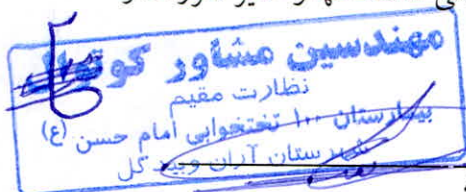 مهندسین مشاور
نظارت مقیم
بیمارستان ۱۰۰ تختخوابی امام حسن (ع)
شهرستان آران و بیدگل